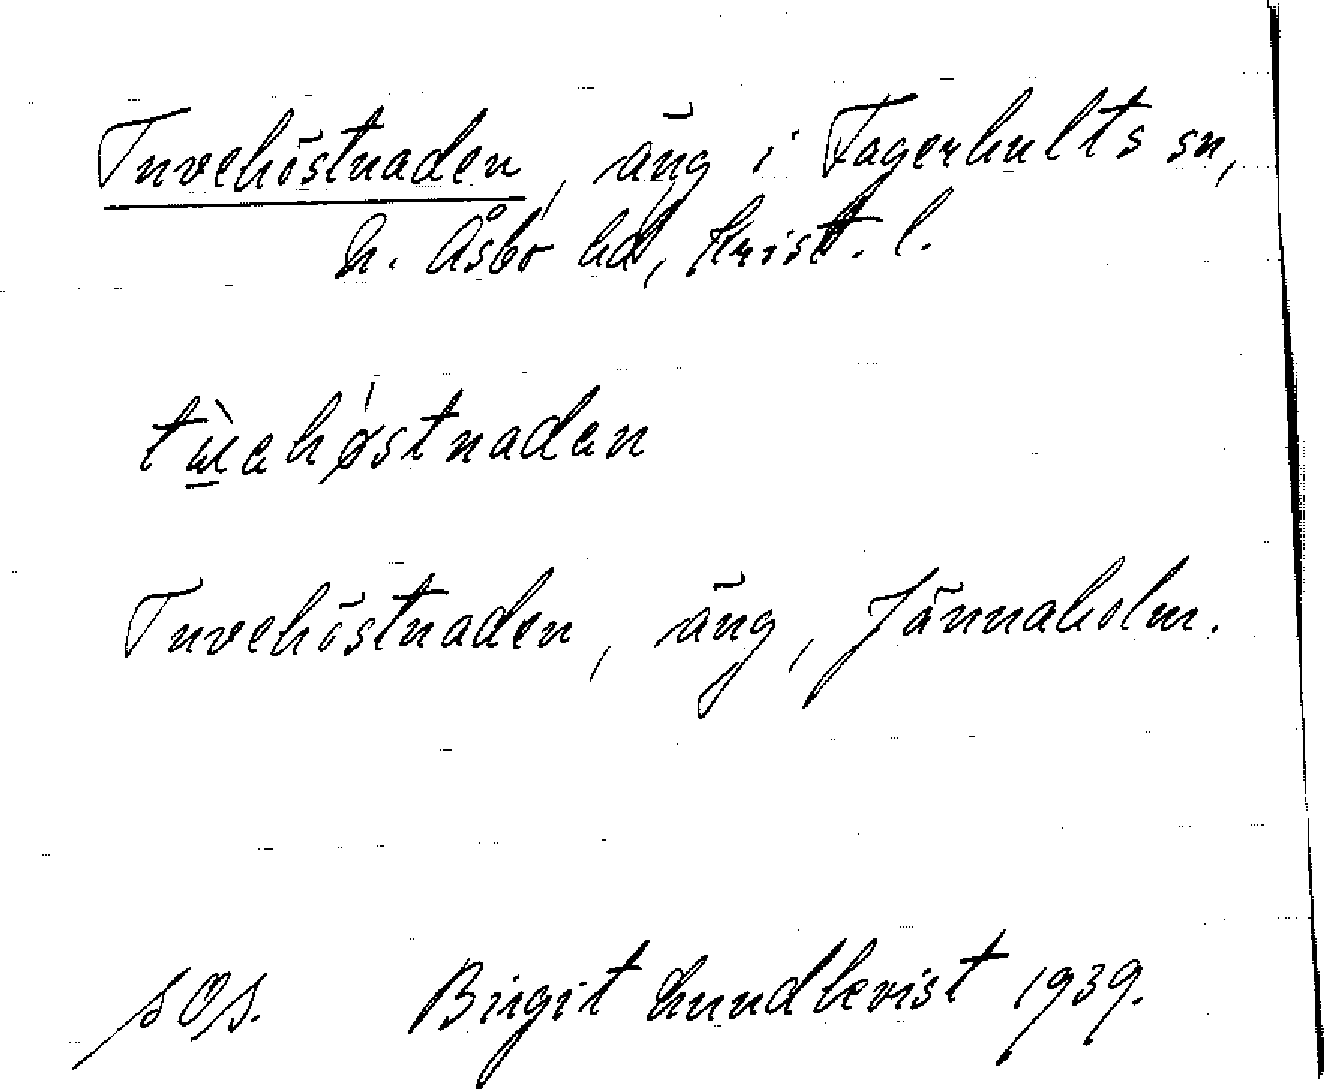 Tuvehöstnaden, äng i Fagerhults sn,
N. Åsbo hd, Krist. l.
Tuvehöstnaden, äng, Jännaholm.
SOS. Birgit Lundkvist 1939.